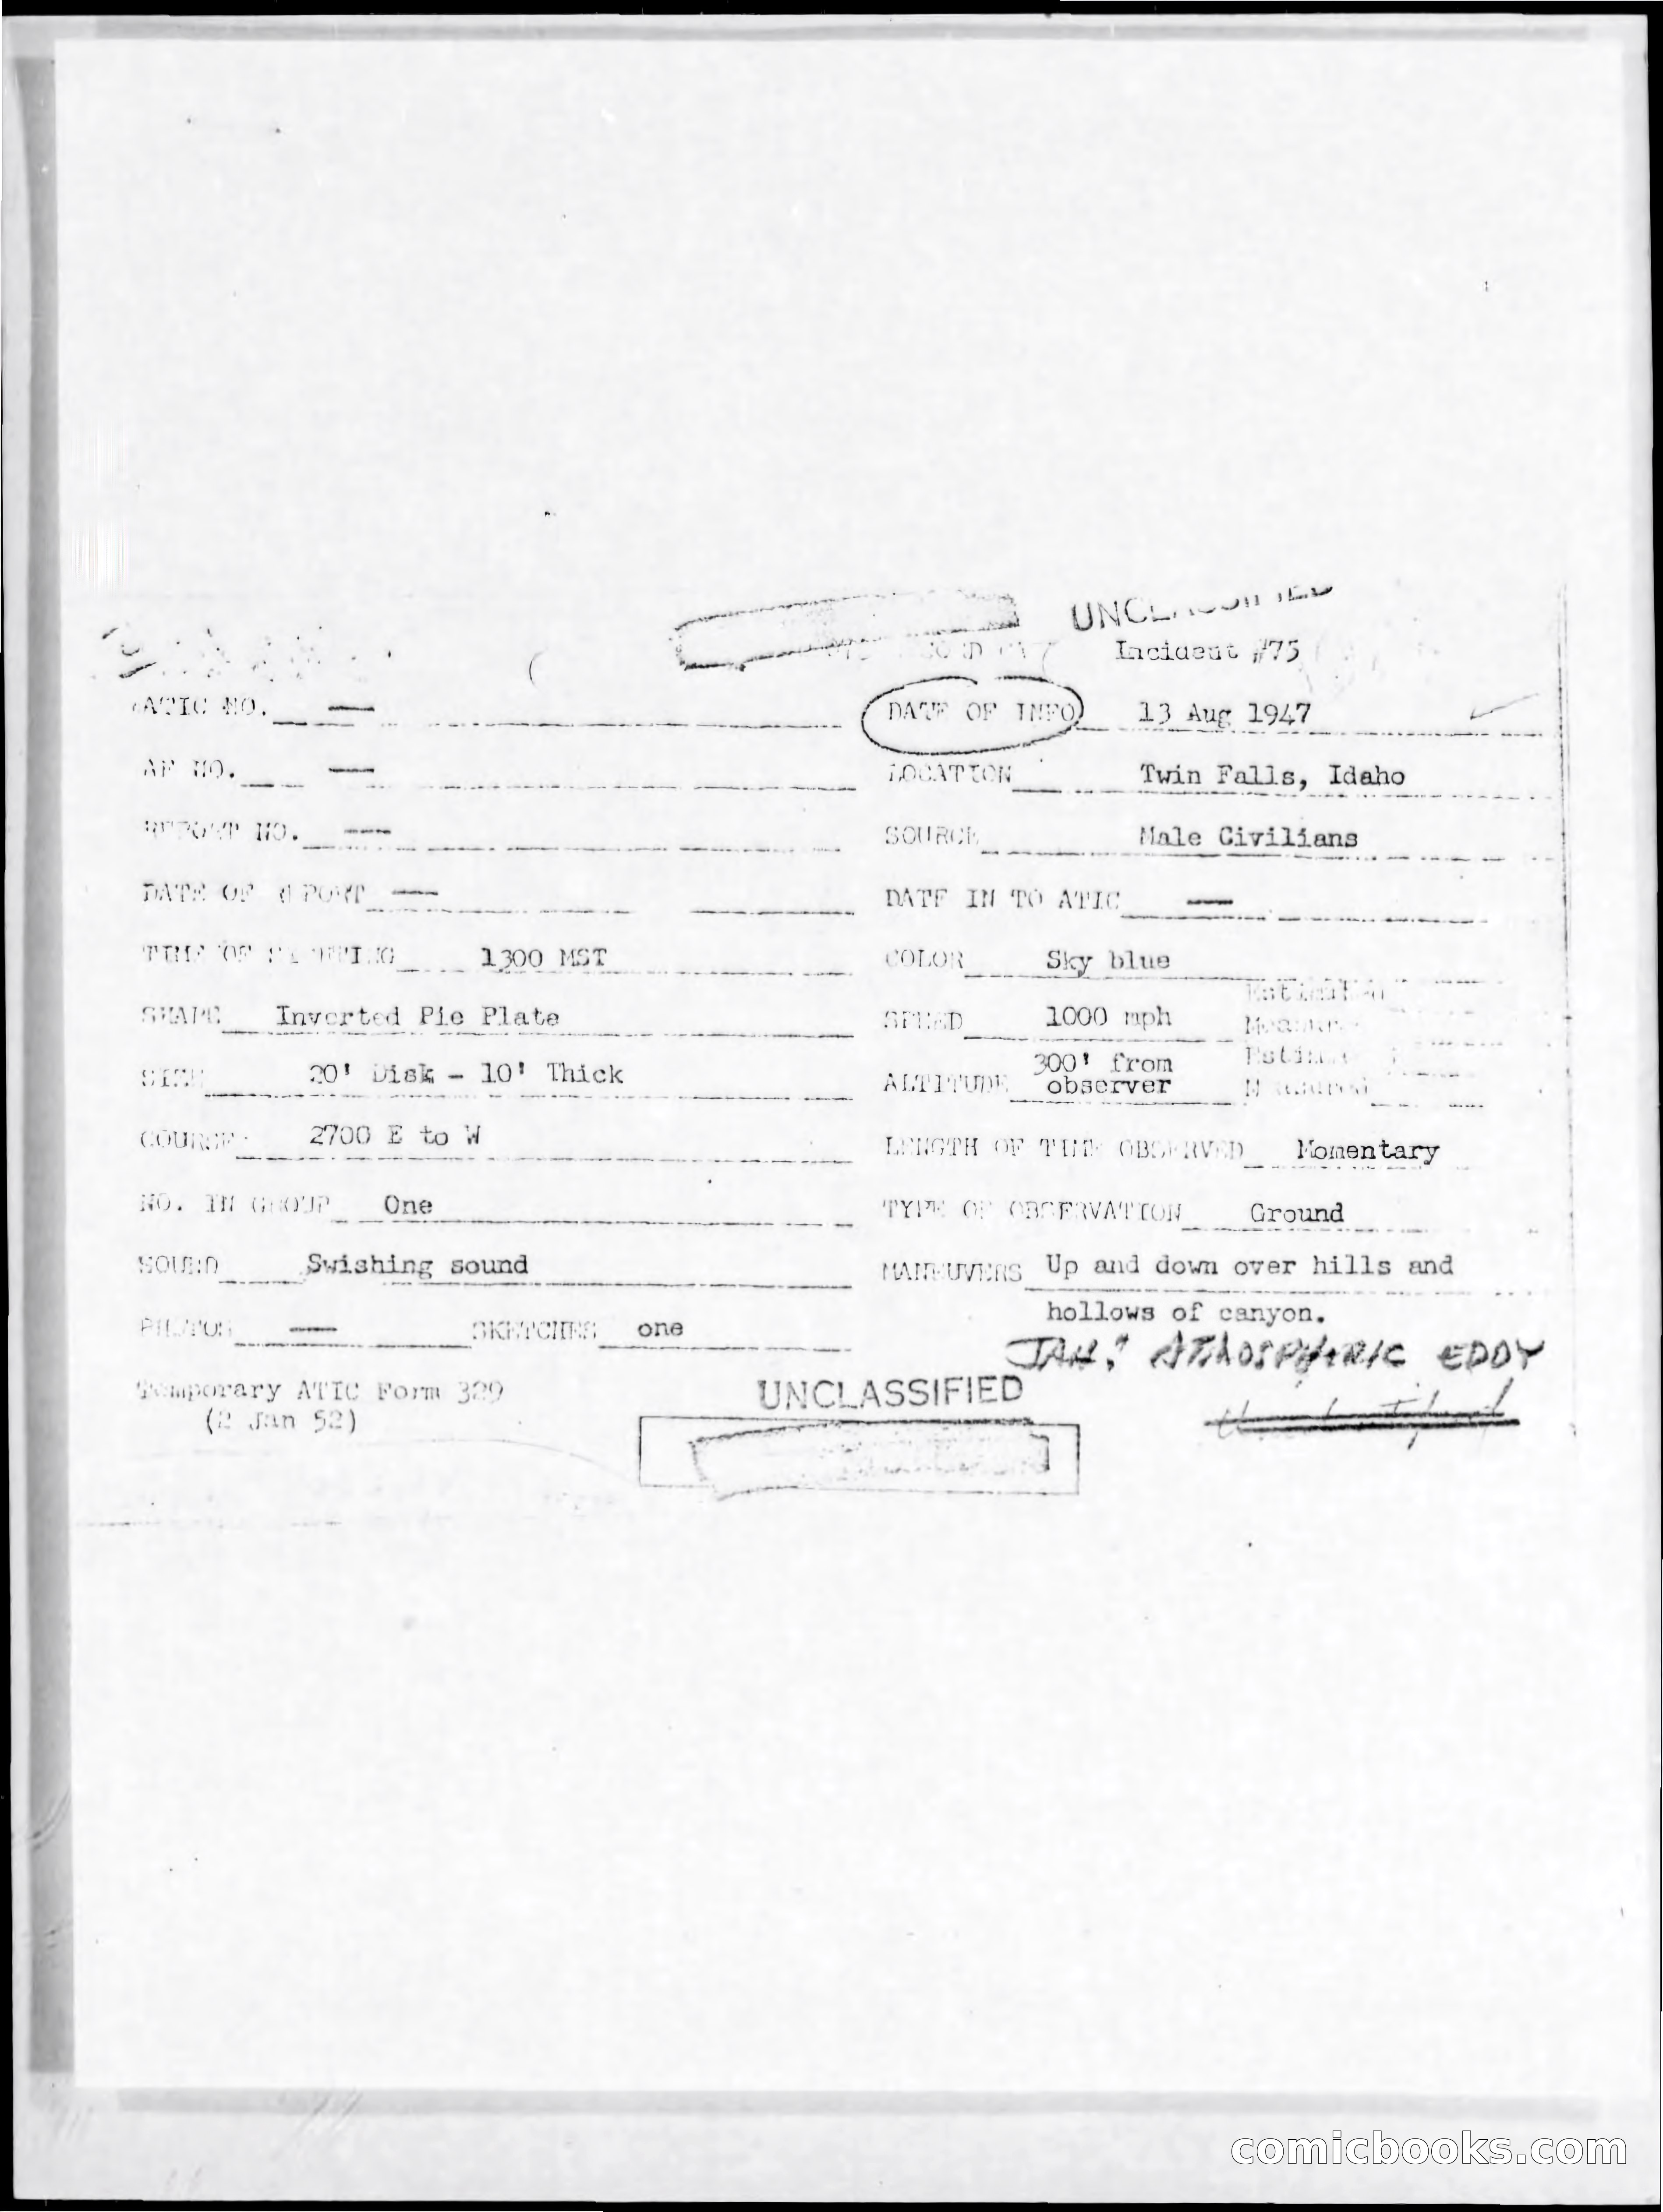 UNCLASSIFIED
Incident #75
ATIC NO. — DATE OF INFO 13 Aug 1947
AF NO. — LOCATION Twin Falls, Idaho
REPORT NO. — SOURCE Male Civilians
DATE OF REPORT — DATE IN TO ATIC —
TIME OF SIGHTING 1300 MST COLOR Sky blue
SHAPE Inverted Pie Plate SPEED 1000 mph Estimated
Measured
SIZE 20' Disk - 10' Thick ALTITUDE 300' from observer Estimated
Measured
COURSE 2700 E to W LENGTH OF TIME OBSERVED Momentary
NO. IN GROUP One TYPE OF OBSERVATION Ground
SOUND Swishing sound MANEUVERS Up and down over hills and
hollows of canyon.
PHOTOS — SKETCHES one
ATMOSPHERIC EDDY
Temporary ATIC Form 329
(2 Jan 52)
UNCLASSIFIED
comicbooks.com